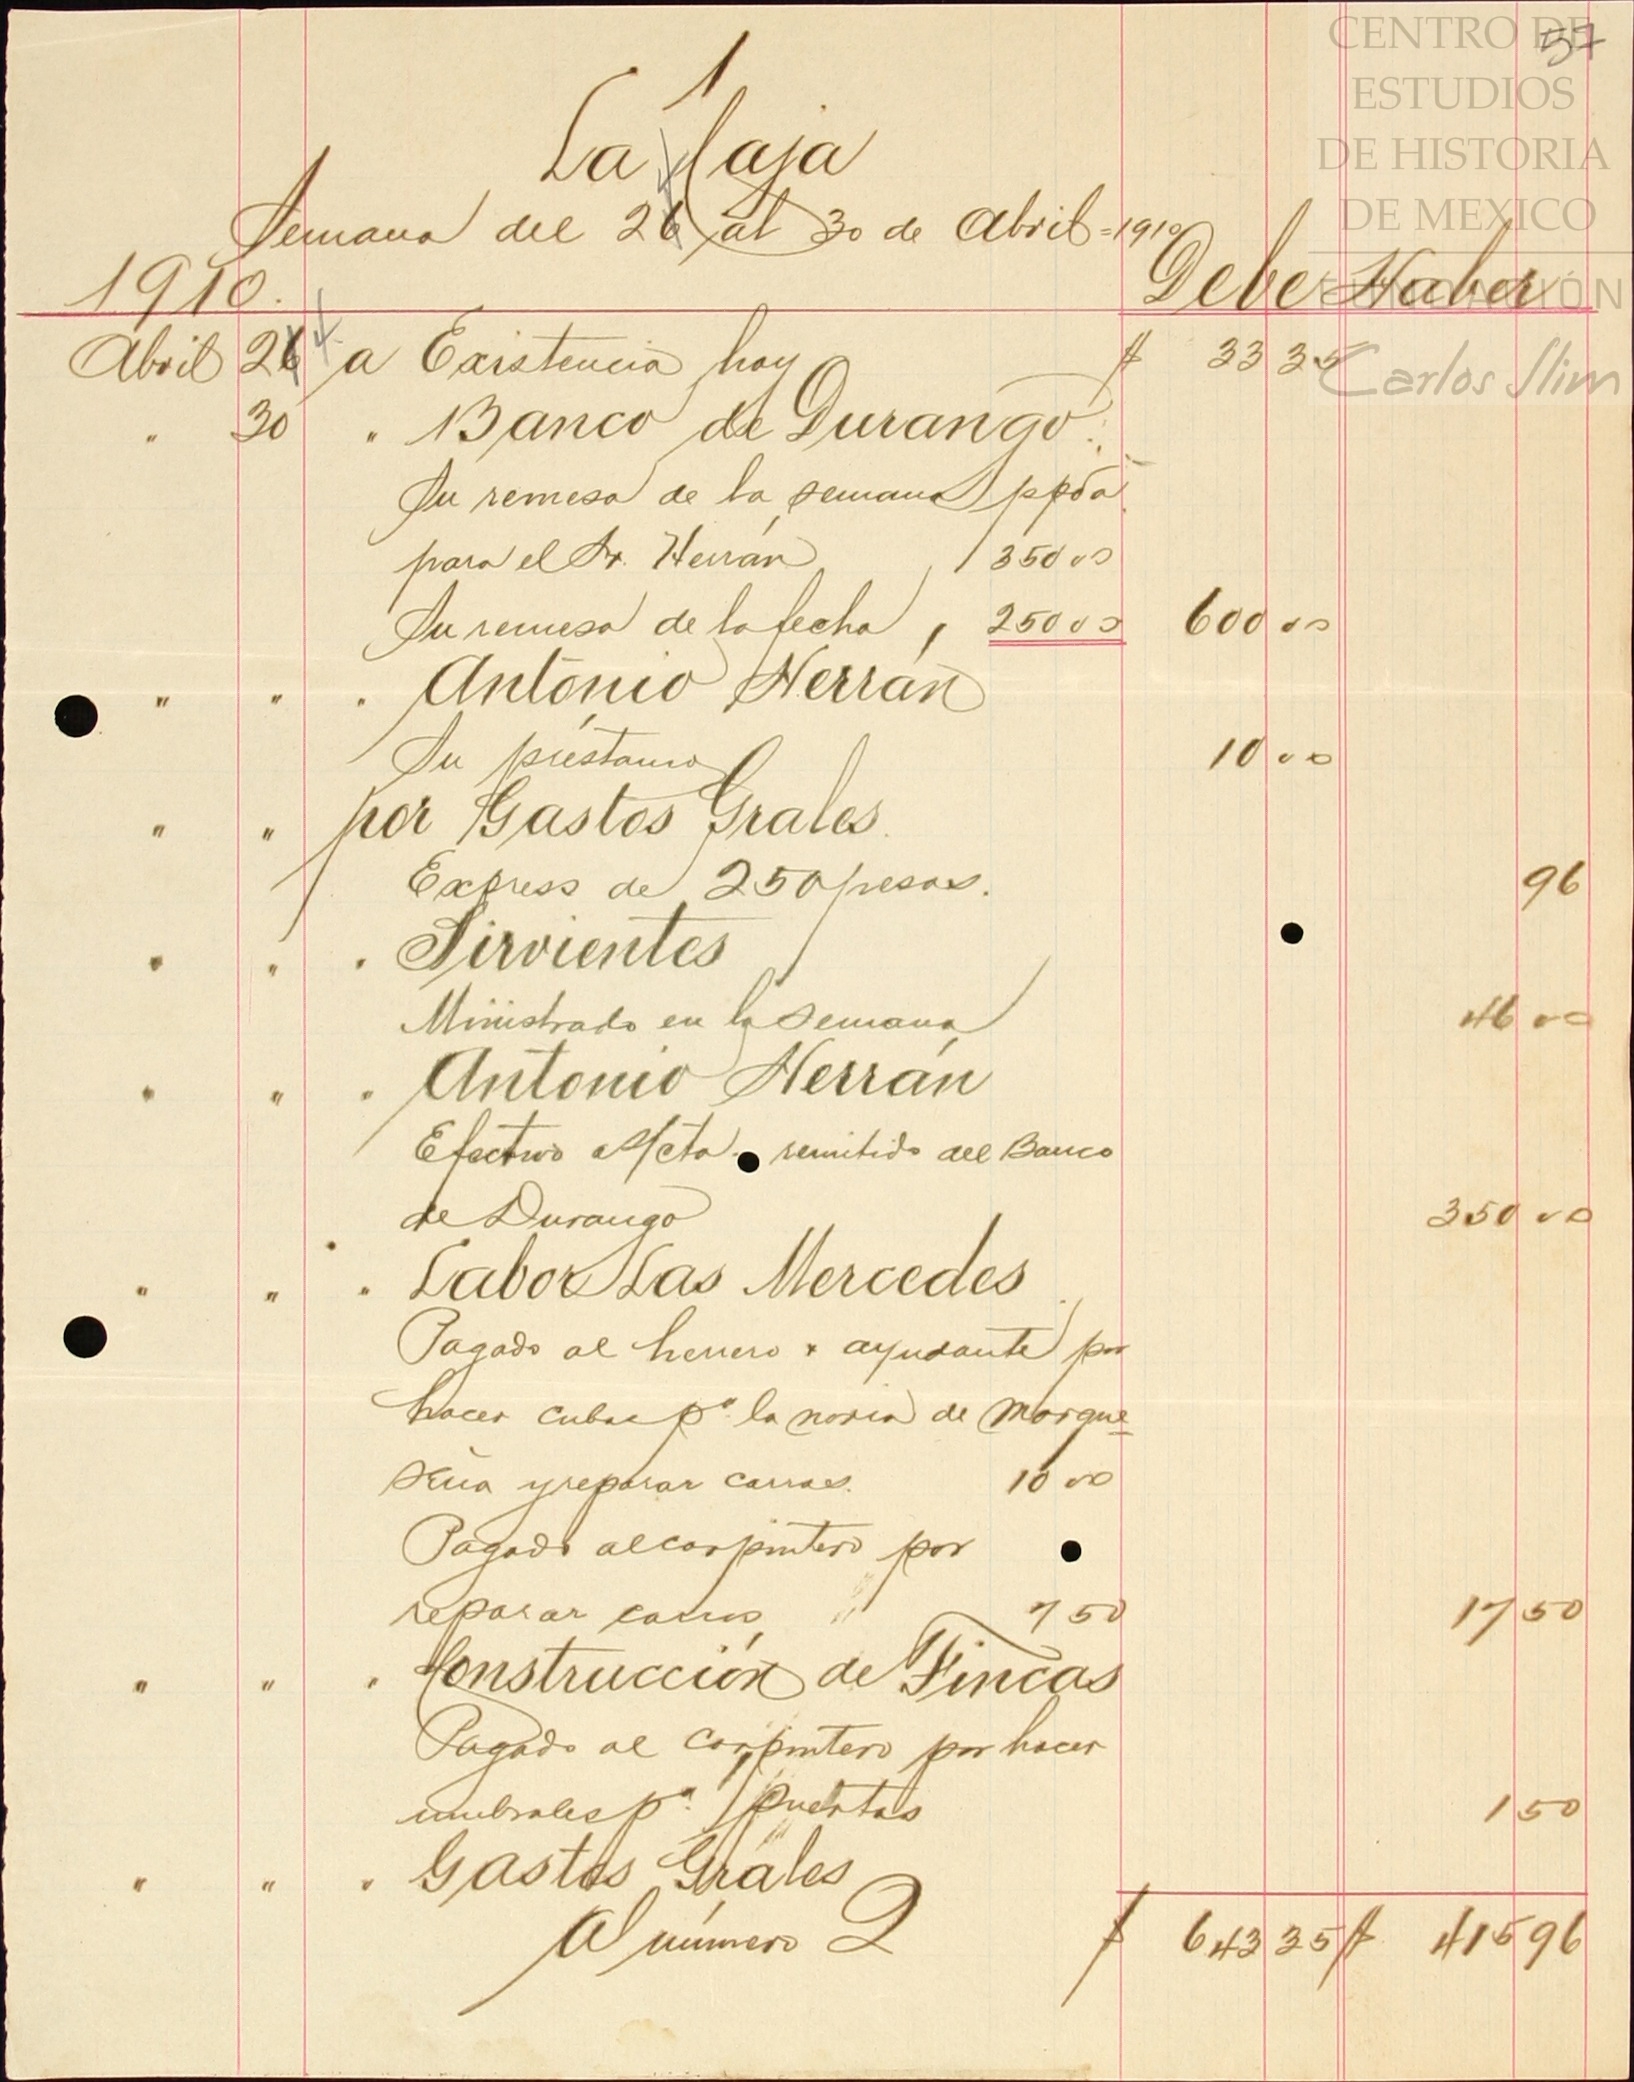 CENTRO DE
ESTUDIOS
DE HISTORIA
DE MEXICO
FUNDACIÓN
Carlos Slim
57
1
La Caja
Semana del 26 al 30 de Abril=1910
1910. Debe Haber
Abril 26 a Existencia hoy $ 33 35
" 30 " Banco de Durango.
Su remesa de la semana ppda
para el Sr. Herrán 350 00
Su remesa de la fecha " 250 00 600 00
" " " Antonio Herrán
Su préstamo 10 00
" " por Gastos Grales.
Express de 250 pesos. 96
" " " Sirvientes
Ministrado en la semana 46 00
" " " Antonio Herrán
Efectivo a/cta. remitido del Banco
de Durango 350 00
" " " Labor Las Mercedes
Pagado al herrero y ayudante por
hacer cubas pa. la noria de Marque=
seña y reparar carros. 10 00
Pagado al carpintero por
reparar carros " 7 50 17 50
" " " Construcción de Fincas
Pagado al carpintero por hacer
umbrales pa. puertas 1 50
" " " Gastos Grales
Al número 2 $ 643 35 $ 415 96